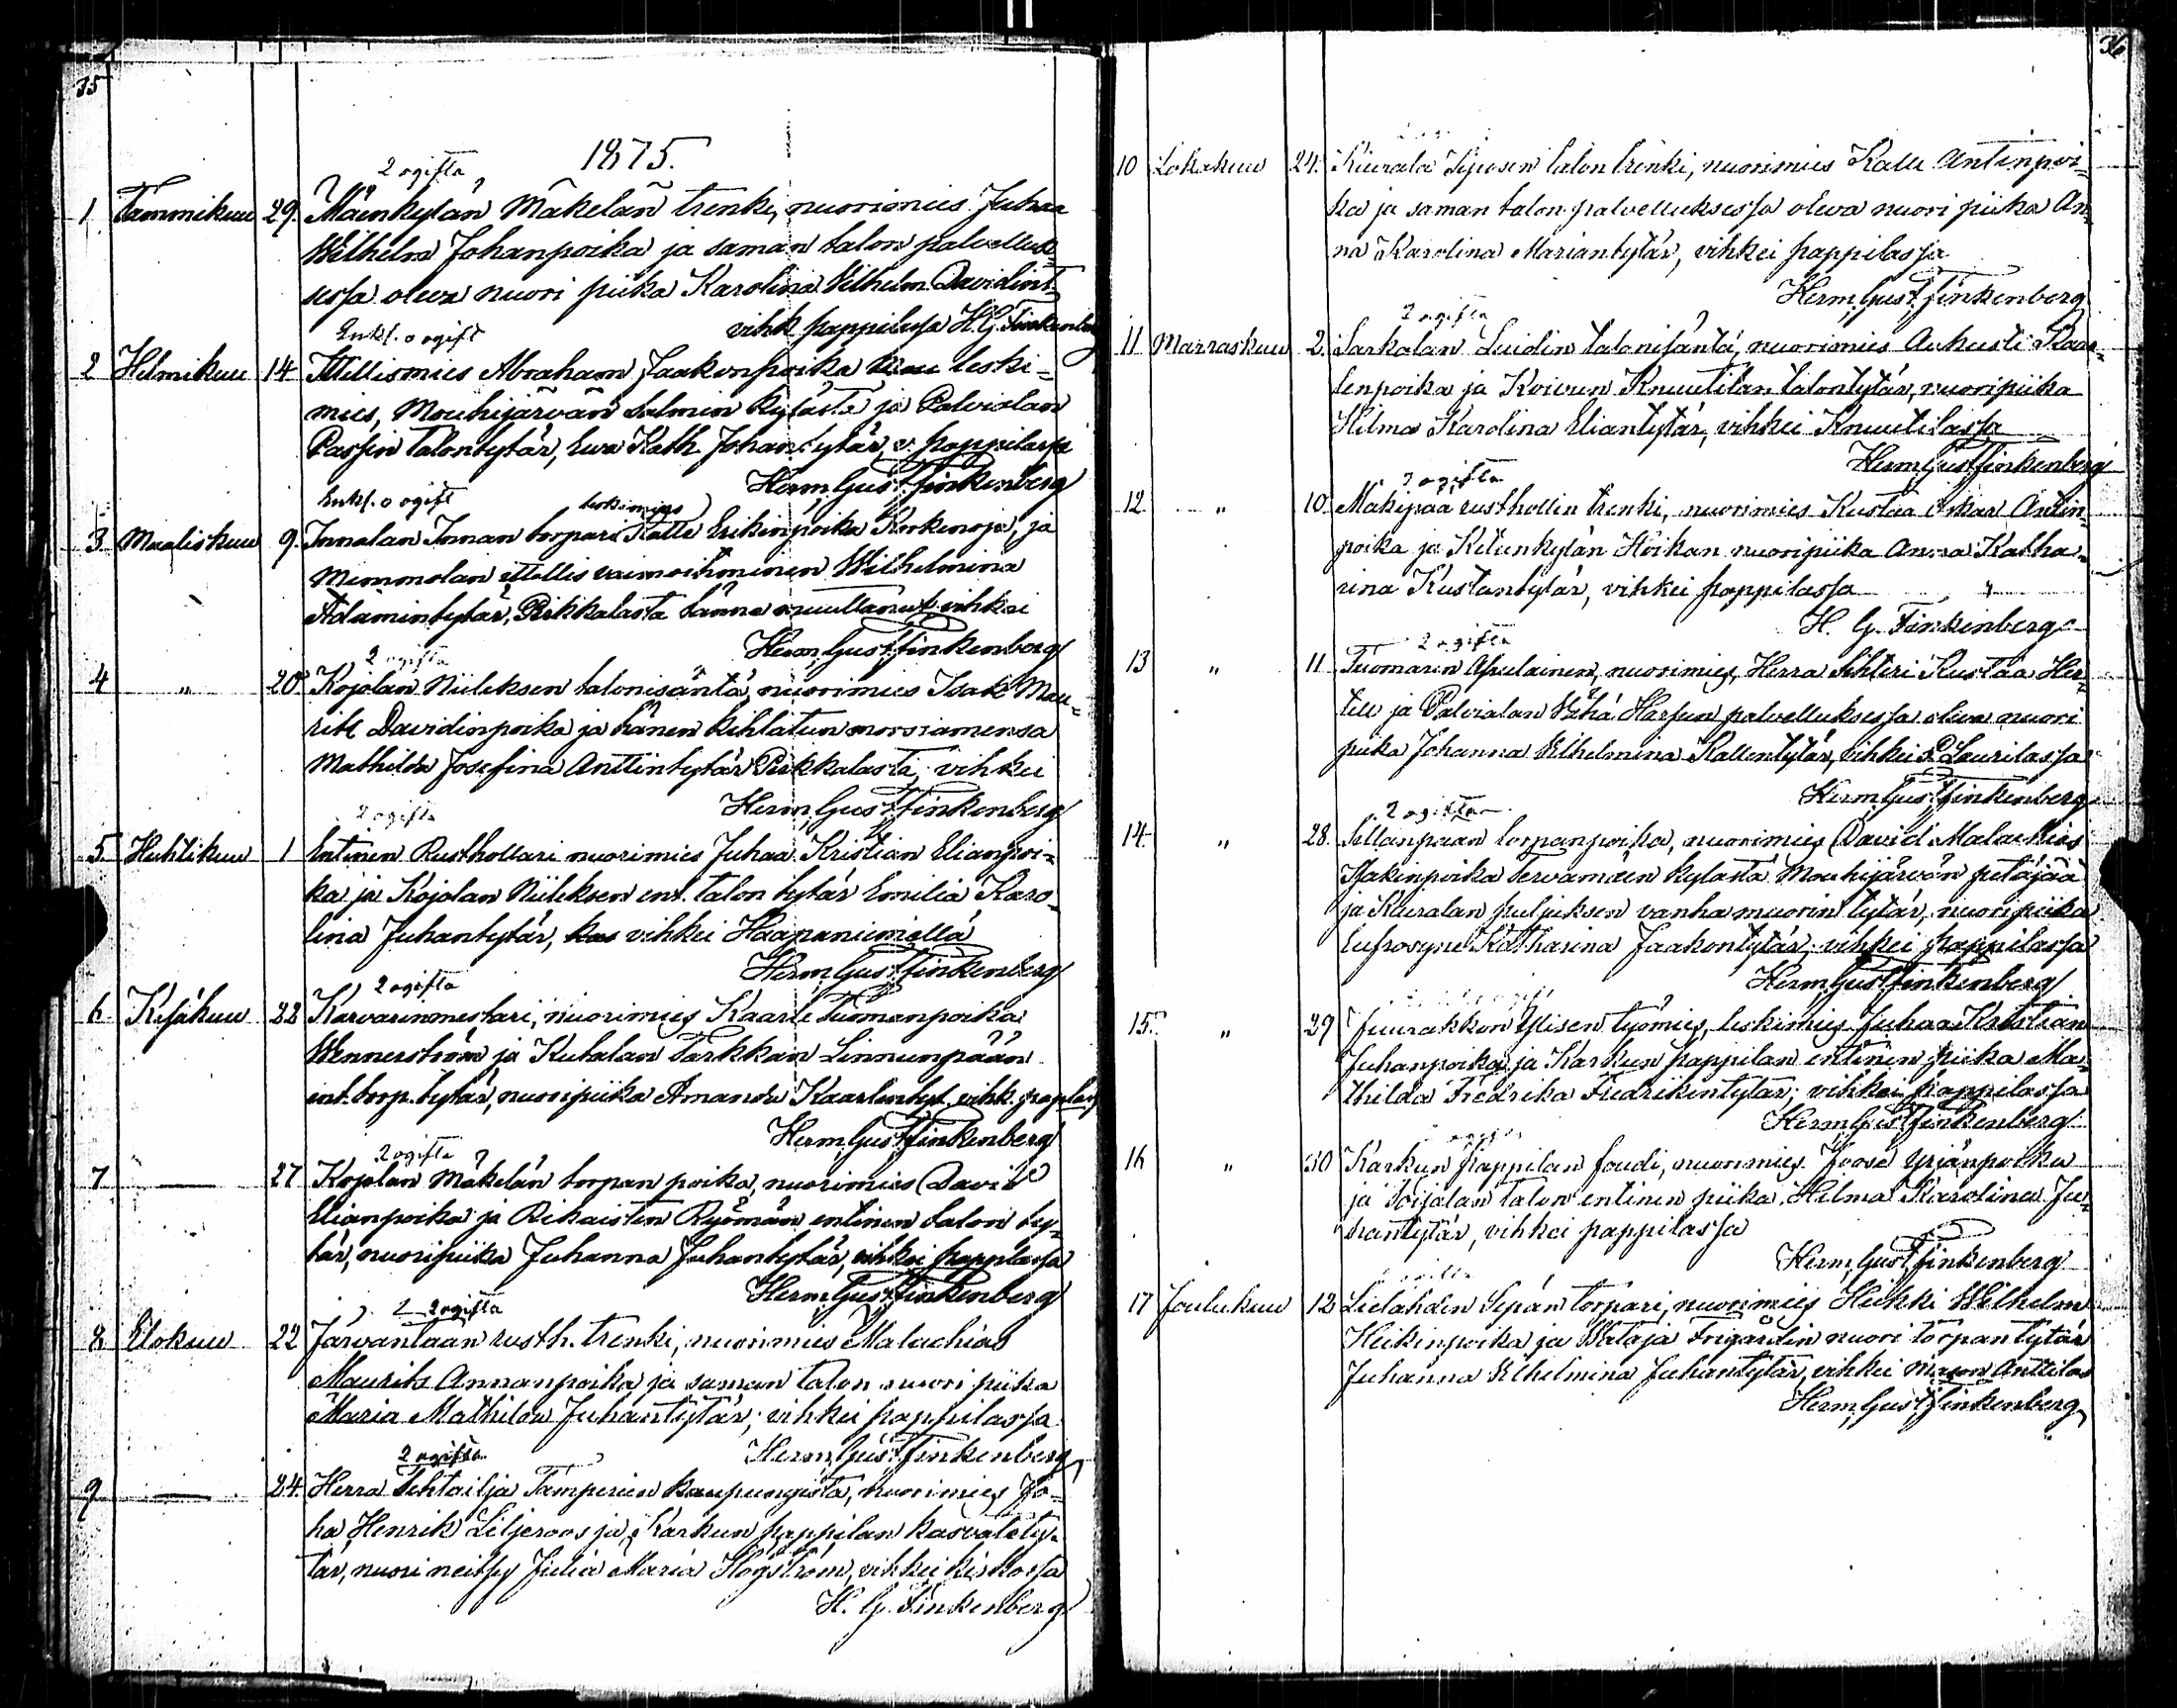 35
1875.
2 ogifta
1 Tammikuu 29. Mäenkylän Mäkelän trenki, nuorimies Juhaa
Wilhelm Johanpoika ja saman talon palveluk-
sessa oleva nuori piika Karolina Vilhelm. Davidint.
vihk pappilassa H.G. Finkenberg
Enkl. o ogift
2 Helmikuu 14 Itellismies Abraham Jaakonpoika leski-
mies, Mouhijärvän Salmin kylästä ja Palvialan
Passin talontytär, Ewa Kath. Johantytär, v. pappilassa
Herm. Gust. Finkenberg
Enkl. o ogift leskimies
3. Maaliskuu 9. Innalan Innan torpari Kalle Erikinpoika Korkenoja, ja
Mommolan ittellis vaimoihminen Wilhelmina
Adamintytär, Pirkkalasta tänne muuttanut vihkei
Herm. Gust. Finkenberg
2 ogifta
4 " 20 Kojolan Niileksen talonisäntä, nuorimies Isak Mau-
ritz Davidinpoika ja hänen kihlatun morsiamensa
Mathilda Josefina Anttintytär Pirkkalasta, vihkei
Herm. Gust. Finkenberg
2 ogifta
5. Huhtikuu 1 Entinen Rusthollari nuorimies Juhaa Kristian Elianpoi-
ka ja Kojolan Niileksen ent. talon tytär Emilia Karo-
lina Juhantytär, vihkei Haapaniemellä
Herm. Gust. Finkenberg
2 ogifta
6. Kesäkuu 22 Karvarinmestari, nuorimies Kaarle Tuomanpoika
Wennerström ja Kutalan Tarkkan Linnunpään
ent. torp. tytär, nuoripiika Amanda Kaarlentyt. vihk. paplas
Herm. Gust. Finkenberg
2 ogifta
7 — 27 Kojolan Mäkelän torpan poika, nuorimies David
Elianpoika ja Rikaisten Ryömän entinen talon ty-
tär, nuoripiika Juhanna Juhantytär, vihkei pappilassa
Herm. Gust. Finkenberg
2 ogifta
8. Elokuu 22 Järventaan rusth. trenki, nuorimies Malachias
Maurits Annanpoika ja saman talon nuori piika
Maria Mathilda Juhantytär, vihkei pappilassa
Herm. Gust. Finkenberg
2 ogifta
9 — 24. Herra Tehtailja Tamperien kaupungista, nuorimies Jo-
ha Henrik Liljeroos ja Karkun pappilan kasvatety-
tär, nuori neitsy Julia Maria Högström, vihkei kirkossa
H. G. Finkenberg
36
10 Lokakuu 24. Kiurala Siposen talon trenki, nuorimies Kalle Antinpoi-
ka ja saman talon palvelluksessa oleva nuori piika An-
na Karolina Mariantytär, vihkei pappilassa
Herm. Gust. Finkenberg
2 ogifta
11 Marraskuu 2. Sarkolan Luidin talonisäntä, nuorimies Auhusti Kaar-
lenpoika ja Koivun Knuutilan talontytär, nuoripiika
Hilma Karolina Eliantytär, vihkei Knuutilassa
Herm. Gust. Finkenberg
2 ogifta
12 " 10. Mäkipää rusthollin trenki, nuorimies Kustaa Oskar Antin-
poika ja Kilunkylän Hoikan nuoripiika Anna Katha-
rina Kustantytär, vihkei pappilassa
H. G. Finkenberg
2 ogifta
13 " 11 Tuomarin Apulainen, nuorimies, Herra Sihteri Kustaa Her-
tell ja Palvialan Vähä Harjun palvelluksessa oleva nuori
piika Johanna Vilhelmina Kallentytär, vihkei Laurilassa
Herm. Gust. Finkenberg
2 ogifta
14. " 28. Sillanpaan torpanpoika, nuorimies David Malachias
Isakinpoika Tervamäen kylästä Mouhijärvän pitäjää
ja Kiuralan puljuksen vanha muorin tytär, nuoripiika
Eufrosyne Katharina Jaakontytär, vihkei pappilassa
Herm. Gust. Finkenberg
15. " 29 Juurakkon Ylisen työmies, leskimies Juhaa Kristian
Juhanpoika ja Karkun pappilan entinen piika Ma-
thilda Fredrika Fredrikintytär, vihkei pappilassa
Herm. Gust. Finkenberg
ogifta
16 " 30 Karkun Pappilan foudi, nuorimies Joose Yrjänpoika
ja Soijalan talon entinen piika Hilma Karolina Ju-
hantytär, vihkei pappilassa
Herm. Gust. Finkenberg
17 Joulukuu 12 Lielahden Sepän torpari, nuorimies Heikki Wilhelm
Heikinpoika ja Frigårdin nuori torpan tytär
Juhanna Vilhelmina Juhantytär, vihkei Anttilas
Herm. Gust. Finkenberg